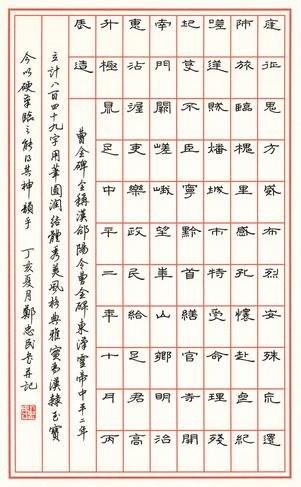 廷征鬼方威布烈安殊荒還
師旅臨槐里感孔懷赴喪紀
嗟逆賊燔城市特受命理殘
圮芟不臣寧黔首繕官寺開
南門闕嵯峨望華山鄉明治
惠沾渥吏樂政民給足君高
升極鼎足中平二年十月丙
辰造
曹全碑全稱漢郃陽令曹全碑東漢靈帝中平二年
立計八百四十九字用筆圓潤結體秀美風格典雅實為漢隸至寶
今以硬筆臨之能得其神韻乎 丁亥夏月鄭忠民書并記